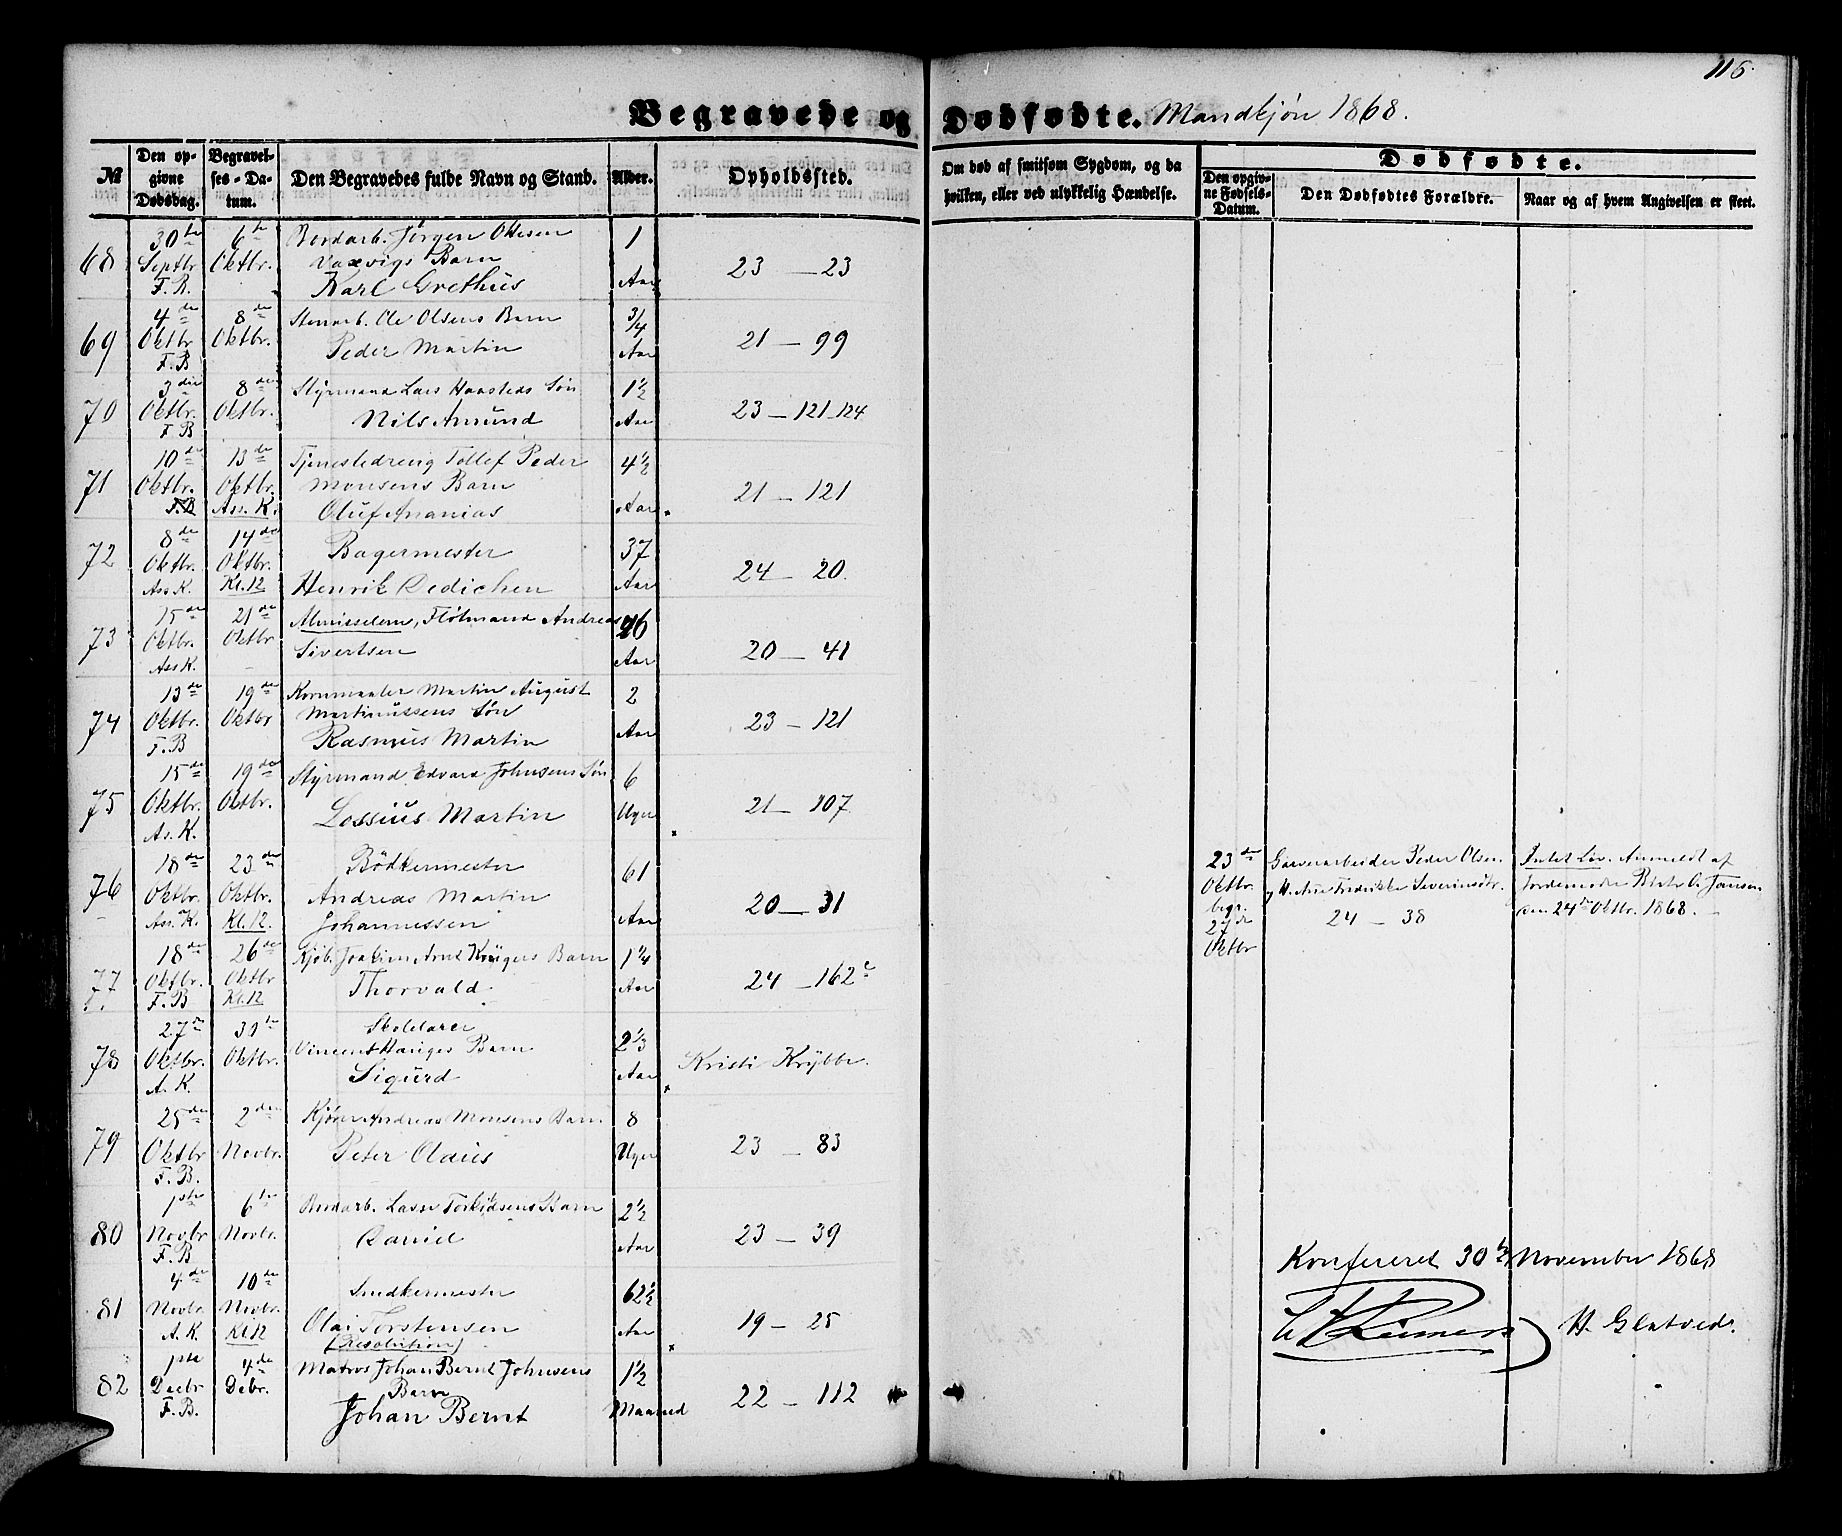 115.
Begravede og Dødfødte. Mandkjøn 1868.
№
Den opgivne Dødsdag.
Begravelses-Datum.
Den Begravedes fulde Navn og Stand.
Alder.
Opholdssted.
Om død af smitsom Sygdom, og da hvilken, eller ved ulykkelig Hændelse.
Dødfødte.
Den opgivne Fødsels-Datum.
Den Dødfødtes Forældre.
Naar og af hvem Angivelsen er skeet.
68 30te Septbr F. B. 6te Oktbr. Bordarb. Jørgen Ottesen
Vaxvigs Barn
Karl Grethus 1 Aar 23 — 23
69 4de Oktbr F. B 8de Oktbr. Stenarb. Ole Olsens Barn
Peder Martin 3/4 Aar 21 — 99
70 3die Oktbr. F B 8de Oktbr. Styrmand Lars Haasteds Søn
Nils Amund 1½ Aar 23 — 121-124
71 10de Oktbr. F.B 13de Oktbr. Ass. K. Tjenestedreng Tollef Peder
Monsens Barn
Oluf Ananias 4½ Aar 21 — 121
72 8de Oktbr. Ass K. 14de Oktbr. Kl. 12 Bagermester
Henrik Dedichen 37 Aar 24 — 20.
73 15de Oktbr. Ass K. 21de Oktbr Almisselem, Fløtmand Andreas
Sivertsen 26 Aar 20 — 41
74 13de Oktbr. F. B 19de Oktbr Kornmaaler Martin August
Martinussens Søn
Rasmus Martin 2 Aar 23 — 121
75 15de Oktbr. As. K. 19de Oktbr. Styrmand Edvard Johnsens Søn
Lossius Martin 6 Uger 21 — 107
76 18de Oktbr. Ass. K. 23de Oktbr. Kl. 12. Bödkermester
Andreas Martin
Johannessen 61 Aar 20 — 31
23de Oktbr. begr. 27de Oktbr
Garverarbeider Peder Olsen
og H. Ane Fredrikke Severinsdtr.
24 — 38
Intet Liv. Anmeldt af
Jordemoder Jansen
den 24de Oktbr. 1868. —
77 18de Oktbr. F. B 26de Oktbr Kl. 12 Kjøb. Joakim Arnt Krügers Barn
Thorvald. 1¼ Aar 24 — 162c
78 27de Oktbr. A. K. 31te Oktbr. Skolelærer
Vincent Hauges Barn
Sigurd 2⅓ Aar Kristi Krybbe.
79 25de Oktbr F. B. 2den Novbr. Kjører Andreas Monsens Barn.
Peter Olaus 8 Uger 23 — 83
80 1ste Novbr F. B 6te Novbr. Bordarb. Lasse Torkildsens Barn
Daniel 2½ Aar 23 — 39
81 4de Novbr. A. K. 10de Novbr. Kl. 12 Snedkermester
Olai Torstensen
(Resolution) 62½ Aar 19 — 25
Konfereret 30te November 1868
H. Glatved.
82 1ste Decbr F. B. 4de Debr. Matros Johan Bernt Johnsens
Barn
Johan Bernt 1½ Maaned 22 — 112